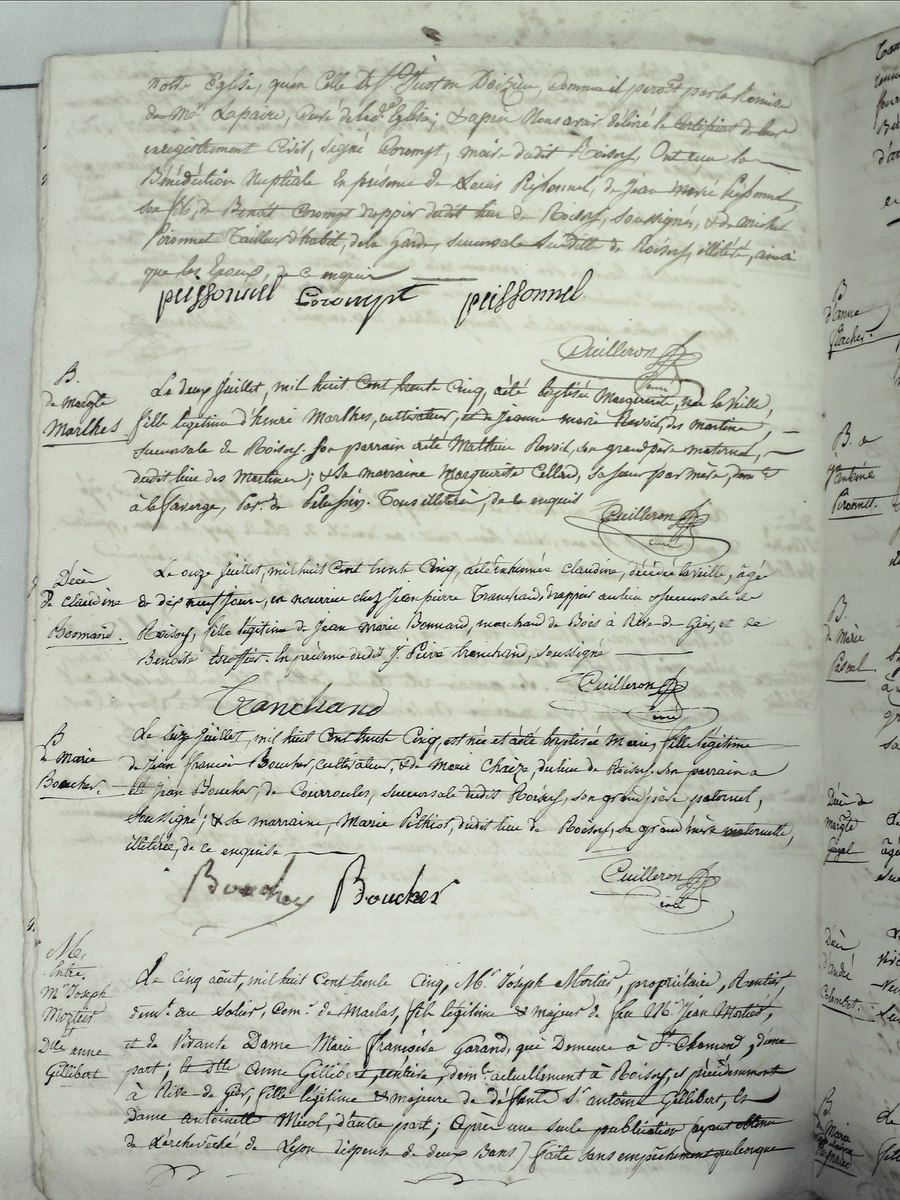 notre Eglise, qu'en Celle De St Just en Doizieu, Comme il
de Mr Lapaire, Curé de lad. Eglise; & après Nous avoir délivré le Certificat de leur
enregistrement Civil, signé Corompt, maire dudit Roisey, Ont reçu la
Bénédiction Nuptiale En présence de Louis Peissonnel, de Jean Marie Peissonnel
son fils, de Benoit Corompt d'appier dudit lieu de Roisey, soussignés, & de Michel
Peronnet Tailleur d'habit, de la Garde, succursale Susditte de Roisey, illitéré, ainsi
que les Epoux, de ce enquis
peissonnel Corompt peissonnel
Cuilleron
curé
B.
de Margte
Marlhes
Le deux Juillet, mil huit Cent trente Cinq, a été baptisée Marguerite, née la Veille,
fille légitime d'henri Marlhes, cultivateur, et de Jeanne Marie Revoil, des Martine,
succursale de Roisey. Son parrain a été Mathieu Revoil, son grand père maternel,
dudit lieu des Martine; & Sa marraine Marguerite Cellard, sa sœur par mère,
à la Faverge, Par. de Pelussin. Tous illitérés, de ce enquis
Cuilleron
curé
Décès
de Claudine
Bonnard.
Le onze Juillet, mil huit Cent trente Cinq, a été inhumée Claudine, décédée la veille, âgée
de dix neuf jours, en nourrice chez Jean pierre Tranchand, d'appier au lieu & succursale de
Roisey, fille légitime de Jean Marie Bonnard, marchand de Bois à Rive de Gier, et de
Benoite Escoffier. En présence dudit J. Pierre tranchand, soussigné
Tranchand
Cuilleron
curé
B
de Marie
Boucher.
Le Seize Juillet, mil huit Cent trente Cinq, est née et a été baptisée Marie, fille légitime
de Jean François Boucher, cultivateur, & de Marie Chaize, du lieu de Roisey. son parrain a
été Jean Boucher, de Courroules, succursale dudit Roisey, son grand père paternel,
soussigné; & sa marraine, Marie Pithiot, dudit lieu de Roisey, sa grand mère maternelle,
illitérée, de ce enquise
Boucher Boucher
Cuilleron
curé
M.
Entre
Mr Joseph
Mortier
& Dlle anne
Gillibert
Le Cinq août, mil huit Cent trente Cinq, Mr Joseph Mortier, propriétaire, Rentier,
demt au Solier, Com. de Maclas, fils légitime & majeur de feu Mr Jean Mortier,
et de Vivante Dame Marie Françoise Garand, qui Demeure à St Chamond, d'une
part; & Dlle Anne Gillibert, rentière, demt actuellement à Roisey, et précédemment
à Rive de Gier, fille légitime & majeure de défunts Sr antoine Gillibert, &
Dame antoinette Micol, d'autre part; Après une seule publication (ayant obtenu
de L'archevêché de Lyon dispense de deux Bans) faite sans empêchement quelconque
B
d'anne
B. de
Antoine
Peronnet.
B.
de Marie
Pascal.
Décès de
margte
Décès
d'André
B